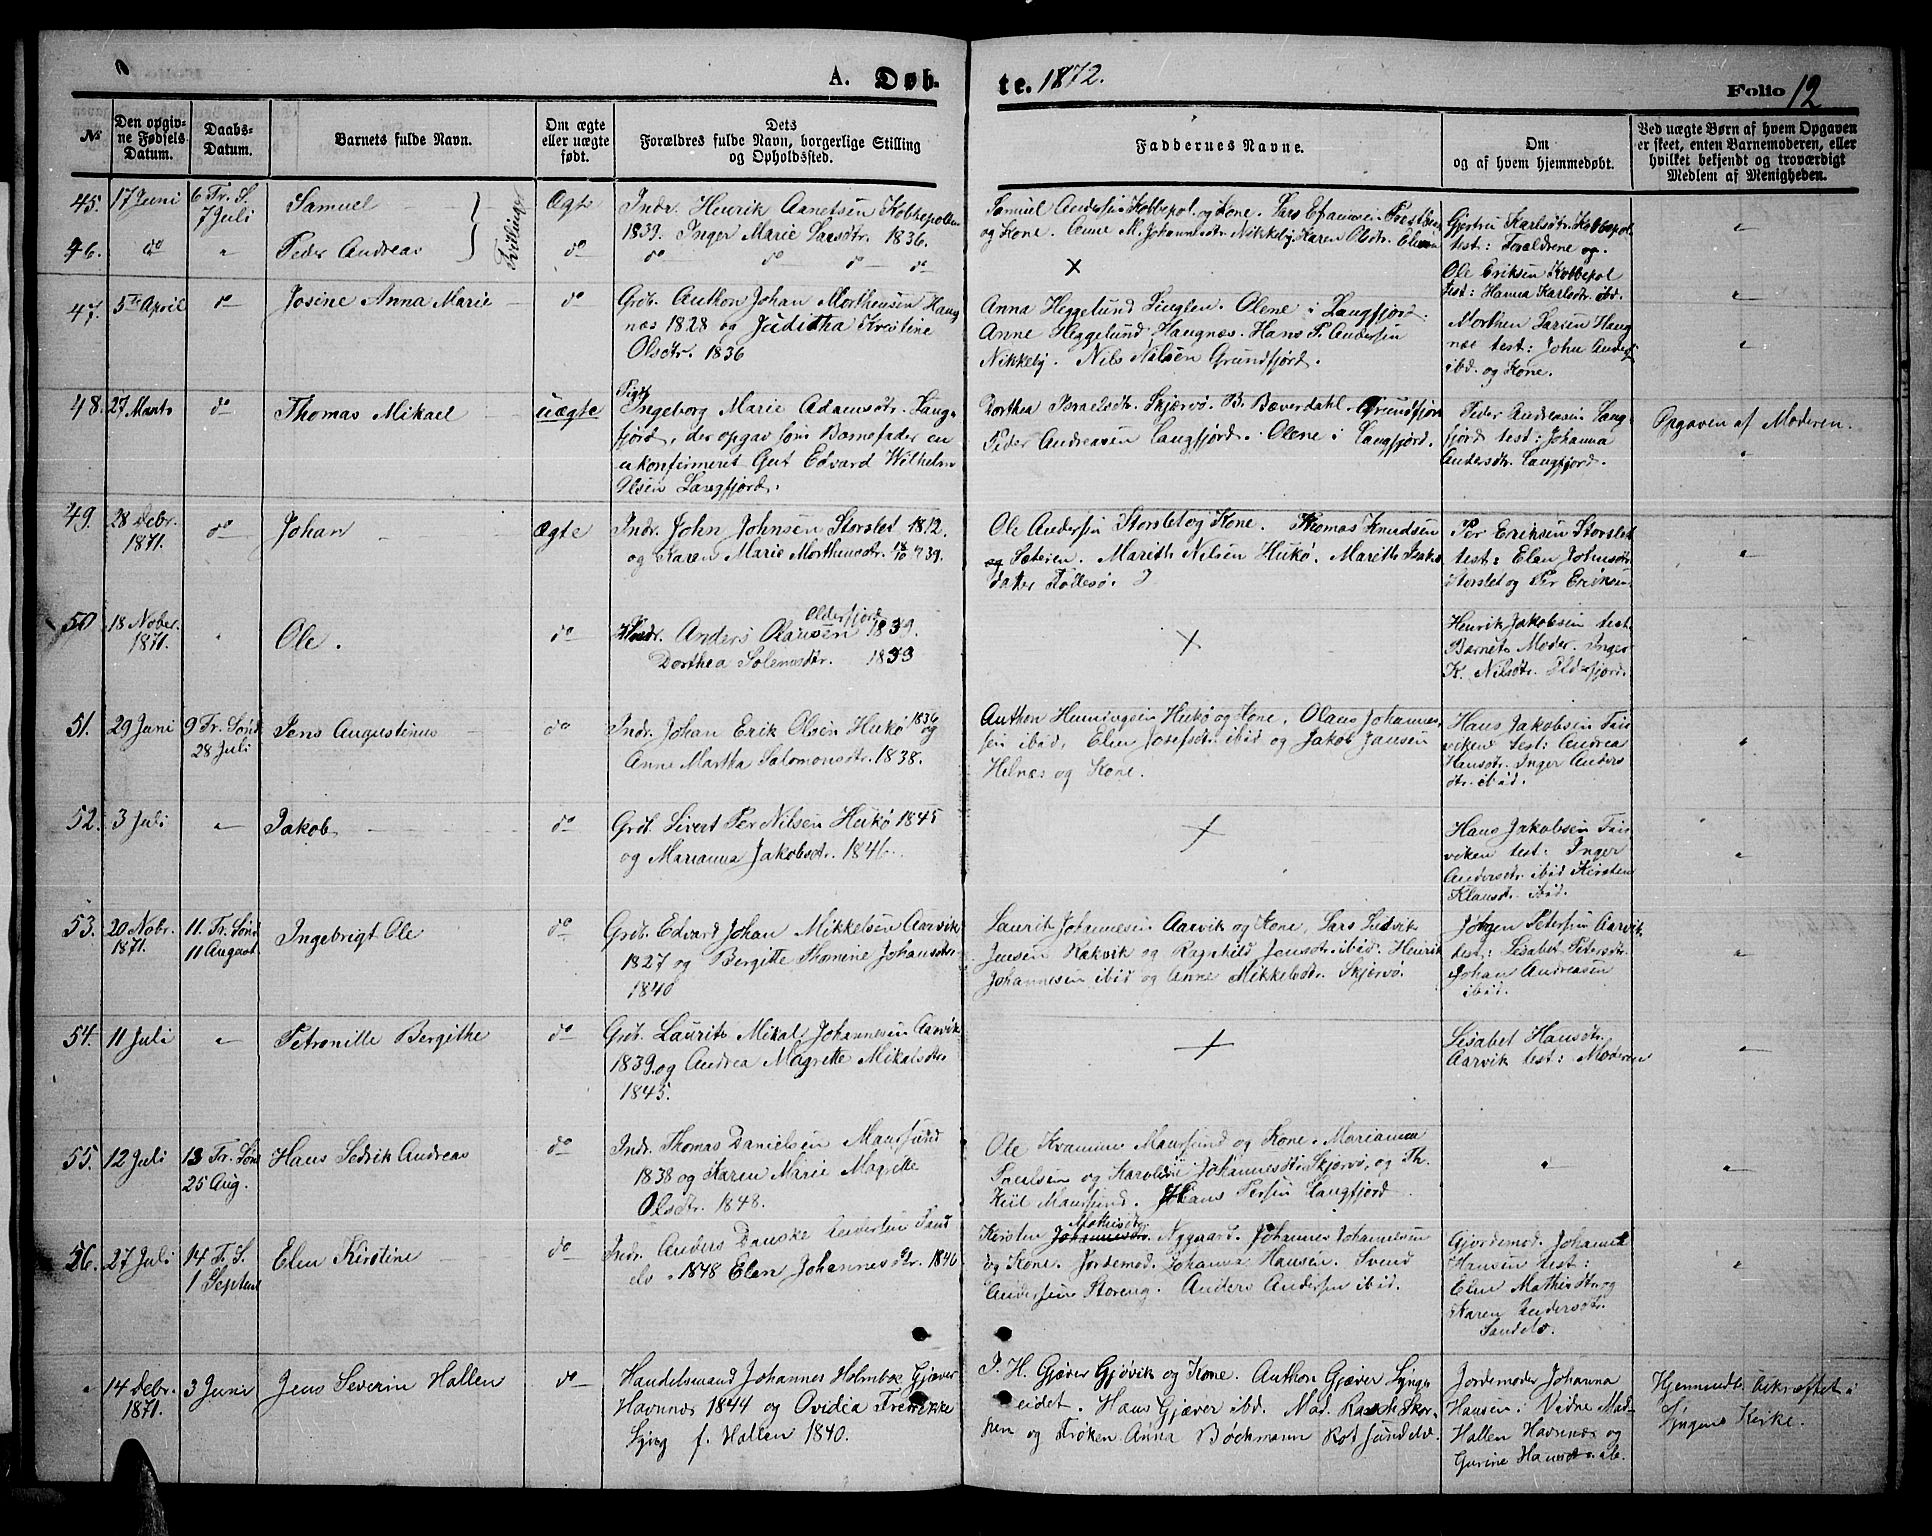 A. Døb-
te. 1872.
Folio 12
№
Den opgiv-
ne Fødsels
Datum.
Daabs-
Datum.
Barnets fulde Navn.
Om ægte
eller uægte
født.
Dets
Forældres fulde Navn, borgerlige Stilling
og Opholdssted.
Faddernes Navne.
Om
og af hvem hjemmedøbt.
Ved uægte Børn af hvem Opgaven
er skeet, enten Barnemoderen, eller
hvilket bekjendt og troværdigt
Medlem af Menigheden.
45. 17 Juni 6 Tr. S.
7 Juli
Samuel
Tvillinger
Ægte
Indr. Henrik Arnetsen Kobbepollen
1839. Inger Marie Larsdtr. 1836.
Samuel Andersen Kobbepol. og Kone. Lars Efraimsen
og Kone. Anne M. Johannesdtr. Nikkeby. Karen Olsdtr.
Gjertru Karlsdtr. Kobbepol
test: Forældrene og
46. do " Peder Andreas do
do do do do
×
Ole Eriksen Kobbepol
test: Hanna Karlsdtr. ibd.
47. 5te April do Josine Anna Marie do
Grdb. Anthon Johan Morthensen Haug
næs 1828 og Juditha Kristine
Olsdtr. 1836
Anna Heggelund Olene i Langfjord.
Anne Heggelund Haugnæs. Hans P. Andersen
Nikkeby. Nils Nilsen Grundfjord.
Morthen Larsen Haug
næs test: John Anders
ibd. og Kone.
48. 27 Marts do Thomas Mikael uægte
Pige
Ingeborg Marie Adamsdtr. Lang-
fjord, der opgav som Barnefader en
ukonfirmeret Gut Edvard Wilhelm
Olsen Langfjord.
Dorthea Israelsdtr. Skjærvø. B. Bæverdahl. Grundfjord
Peder Andreasen Langfjord. Olene i Langfjord.
Peder Andreasen Lang-
fjord test: Johanna
Andersdtr. Langfjord.
Opgaven af Moderen.
49. 28 Debr.
1871. do Johan Ægte
Indr. John Johnsen Storslet 1812.
og Karen Marie Morthensdtr. 18/10 1739.
Ole Andersen Storslet og Kone. Thomas Knudsen
Sæteren. Marith Nilsen Hukø. Marith Isaks
Per Eriksen Storslet
test: Elen Johnsdtr.
Storslet og Per Eriksen
50 18 Nober.
1871. " Ole. do
Indr. Anders Olausen Olderfjord 1839.
Dorthea Solemsdtr. 1833
×
Henrik Jakobsen test:
Barnets Moder. Inger
K. Nilsdtr. Olderfjord.
51. 29 Juni 9 Tr. Sønd
28 Juli
Jens Augustinus do
Indr. Johan Erik Olsen Hukø 1836 og
Anne Martha Salomonsdtr. 1838.
Anthon Henningsen Hukø og Kone, Olaus Johannes-
sen ibid, Elen Josefsdtr. ibid og Jakob Jansen
Helnæs og Kone.
Hans Jakobsen Tai
viken test: Andrea
Hansdtr. Inger Anders
dtr. ibid.
52. 3 Juli " Jakob do
Grdb. Sivert Per Nilsen Hukø 1845
og Marianna Jakobsdtr. 1846.
×
Hans Jakobsen Tai
viken test: Inger
Andersdtr. ibid Kirsten
Klausdtr. ibid.
53. 20 Nobr.
1871. 11. Tr. Sønd
11 August
Ingebrigt Ole do
Grdb. Edvard Johan Mikkelsen Aarvik
1827 og Bergitte Thomine Johansdtr.
1840
Laurits Johannesen Aarvik og Kone, Lars Ludvik
Jensen Rakvik og Ragnhild Jensdtr. ibid. Henrik
Johannesen ibid og Anne Mikkelsdtr. Skjervø.
Jørgen Petersen Aarvik
test: Lisabet Petersdtr.
Johan Andreasen
ibid.
54. 11 Juli " Petronille Bergithe do
Grdb. Laurits Mikal Johannesen Aarvik
1839 og Andrea Magrette Mikalsdtr
1845.
×
Lisabet Hansdtr.
Aarvik test: Moderen
55. 12 Juli 13 Tr. Sønd
25 Aug.
Hans Sedrik Andreas do
Indr. Thomas Danielsen Maursund
1838 og Karen Marie Magrette
Olsdtr. 1848.
Ole Kvamme Maursund og Kone. Marianna
Paulsen og Karoline Johannesdtr. Skjervø, og Th.
Kiil Maursund. Hans Persen Langfjord
56. 27 Juli 14 Tr. S.
1 Septem
Elen Kirstine do
Indr. Anders Danske Andersen Sand
elv 1848 Elen Johannesdtr. 1846
Kirsten Johannesdtr. Mathisdtr. Nygaard. Johannes Johannesen
og Kone. Jordemod. Johanna Hansen. Svend
Andersen Storeng. Anders Andersen ibid.
Gjordemod. Johanna
Hansen test:
Elen Mathisdtr. og
Karen Andersdtr.
Sandelv.
" 14 Debr.
1871. 3 Juni Jens Severin Hallen do
Handelsmand Johannes Holmboe Gjæver
Havnnæs 1844 og Ovidia Fredrikke
Lyng f. Hallen 1840.
P. H. Gjæver Gjøvik og Kone. Anthon Gjæver Lyngs
eidet. Hans Gjæver ibd. Mad. Rasch Skor-
pen og Frøken Anna Bøckmann Rotsundelv.
Jordemoder Johanna
Hansen: Vidne Mad-
Hallen Havnnæs og
Gurine Hansd.
Hjemmedb. bekræftet i
Lyngens Kirke.